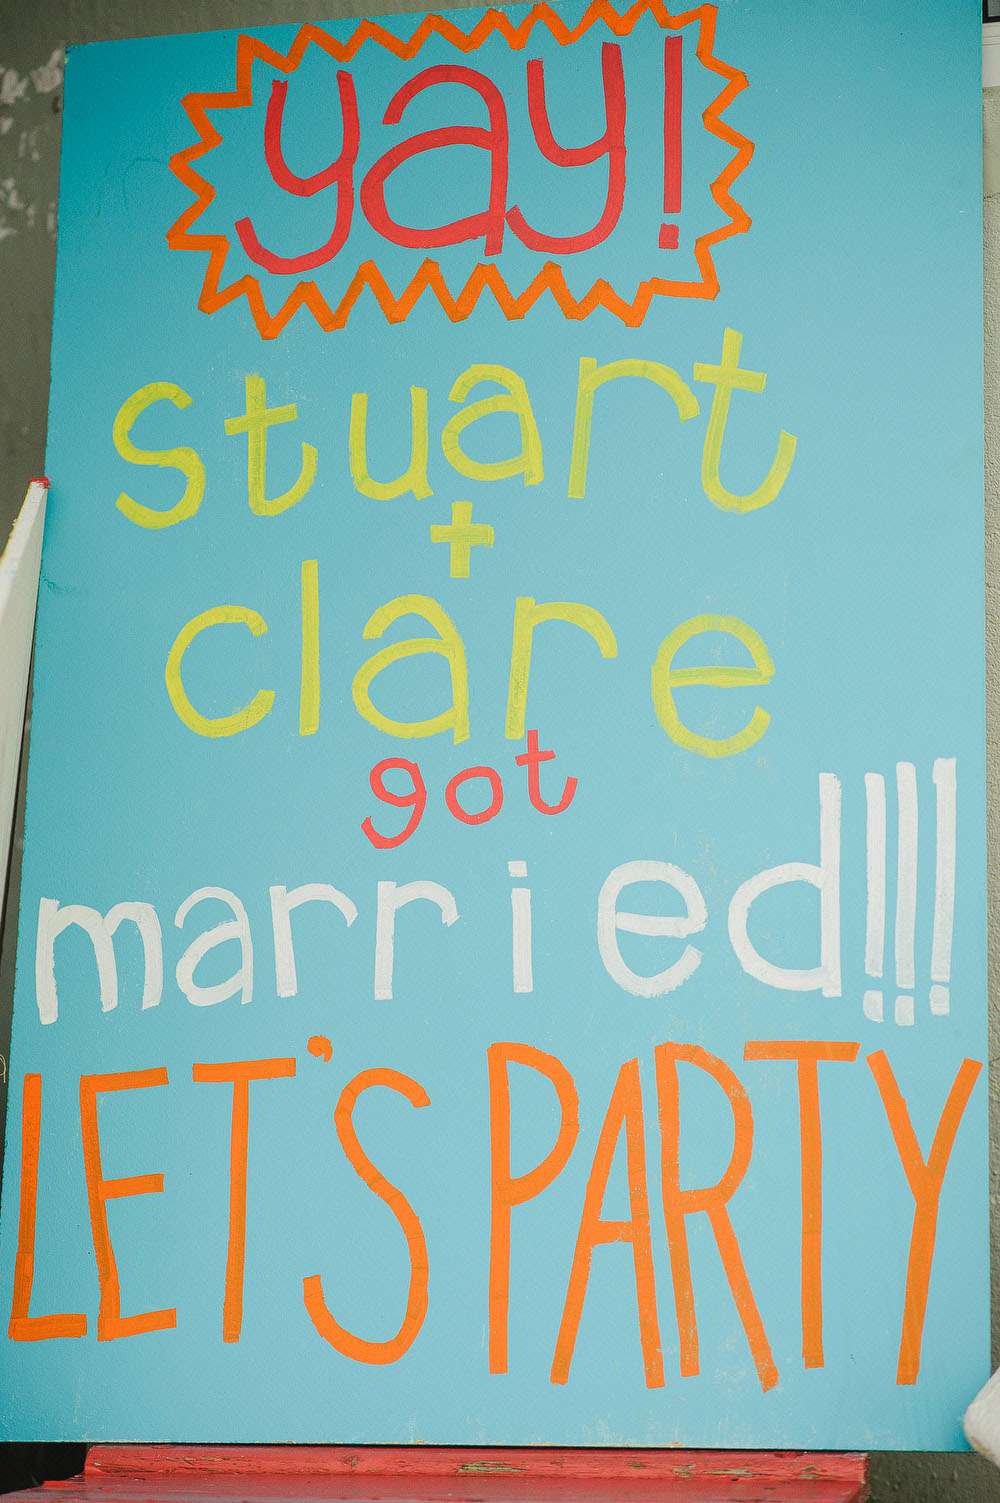 yay!
stuart
+
clare
got
married!!!
LET'S PARTY